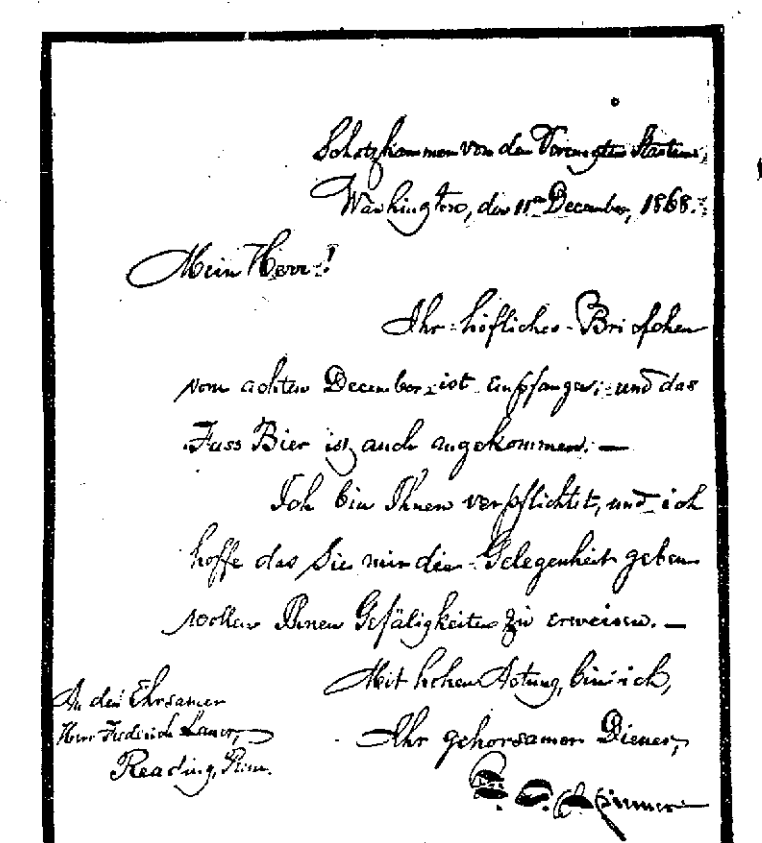 Schatzkammer von den Vereinigten Staaten,
Washington, den 11ten December, 1868.
Mein Herr!
Ihr höfliches Briefchen
vom achten December ist empfangen; und das
Fass Bier ist auch angekommen. —
Ich bin Ihnen verpflichtet, und ich
hoffe das Sie mir die Gelegenheit geben
wollen Ihnen Gefäligkeiten zu erweisen. —
Mit hohen Actung, bin ich,
Ihr gehorsamer Diener,
An den Ehrsamen
Herr Frederich Lauer,
Reading, Penn.